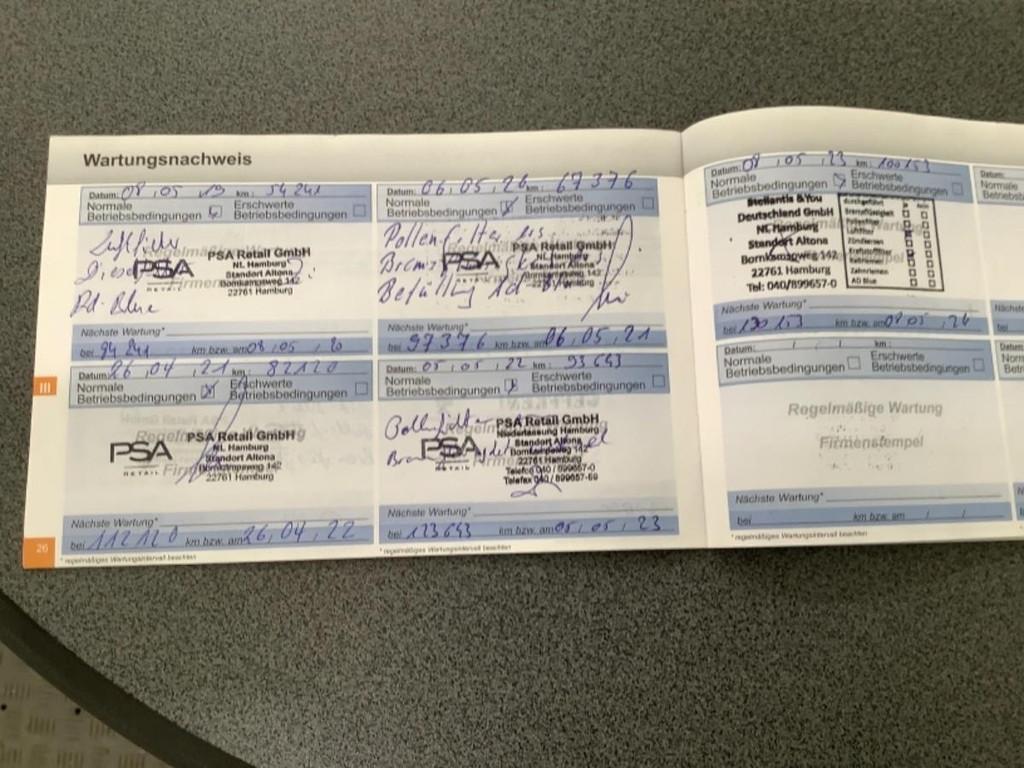 Wartungsnachweis
Datum: 08.05.19 km: 54241
Normale Betriebsbedingungen
Erschwerte Betriebsbedingungen
Regelmäßige Wartung
PSA
RETAIL
PSA Retail GmbH
NL Hamburg
Standort Altona
Bornkampsweg 142
22761 Hamburg
Ad-Blue
Nächste Wartung*
bei 94241 km bzw. am 08.05.20
Datum: 06.05.20 km: 67376
Normale Betriebsbedingungen
Erschwerte Betriebsbedingungen
Pollenfilter
PSA
RETAIL
PSA Retail GmbH
NL Hamburg
Standort Altona
Bornkampsweg 142
22761 Hamburg
Befüllung Ad-Blue
Nächste Wartung*
bei 97376 km bzw. am 06.05.21
Datum: 26.04.21 km: 82120
Normale Betriebsbedingungen
Erschwerte Betriebsbedingungen
PSA
RETAIL
PSA Retail GmbH
NL Hamburg
Standort Altona
Bornkampsweg 142
22761 Hamburg
Nächste Wartung*
bei 112120 km bzw. am 26.04.22
Datum: 05.05.22 km: 93643
Normale Betriebsbedingungen
Erschwerte Betriebsbedingungen
Pollenfilter
PSA
RETAIL
PSA Retail GmbH
Niederlassung Hamburg
Standort Altona
Bornkampsweg 142
22761 Hamburg
Telefon 040 / 899657-0
Telefax 040 / 899657-69
Nächste Wartung*
bei 123643 km bzw. am 05.05.23
26
* regelmäßiges Wartungsintervall beachten
III
Datum: 08.05.23 km: 100153
Normale Betriebsbedingungen
Erschwerte Betriebsbedingungen
Stellantis &You
Deutschland GmbH
NL Hamburg
Standort Altona
Bornkampsweg 142
22761 Hamburg
Tel: 040/899657-0
durchgeführt ja nein
Bremsflüssigkeit
Pollenfilter
Luftfilter
Zündkerzen
Kraftstofffilter
Keilriemen
Zahnriemen
AD Blue
Nächste Wartung*
bei 130153 km bzw. am 08.05.24
Datum: / / km:
Normale Betriebsbedingungen
Erschwerte Betriebsbedingungen
Regelmäßige Wartung
Firmenstempel
Nächste Wartung*
bei km bzw. am / /
* regelmäßiges Wartungsintervall beachten